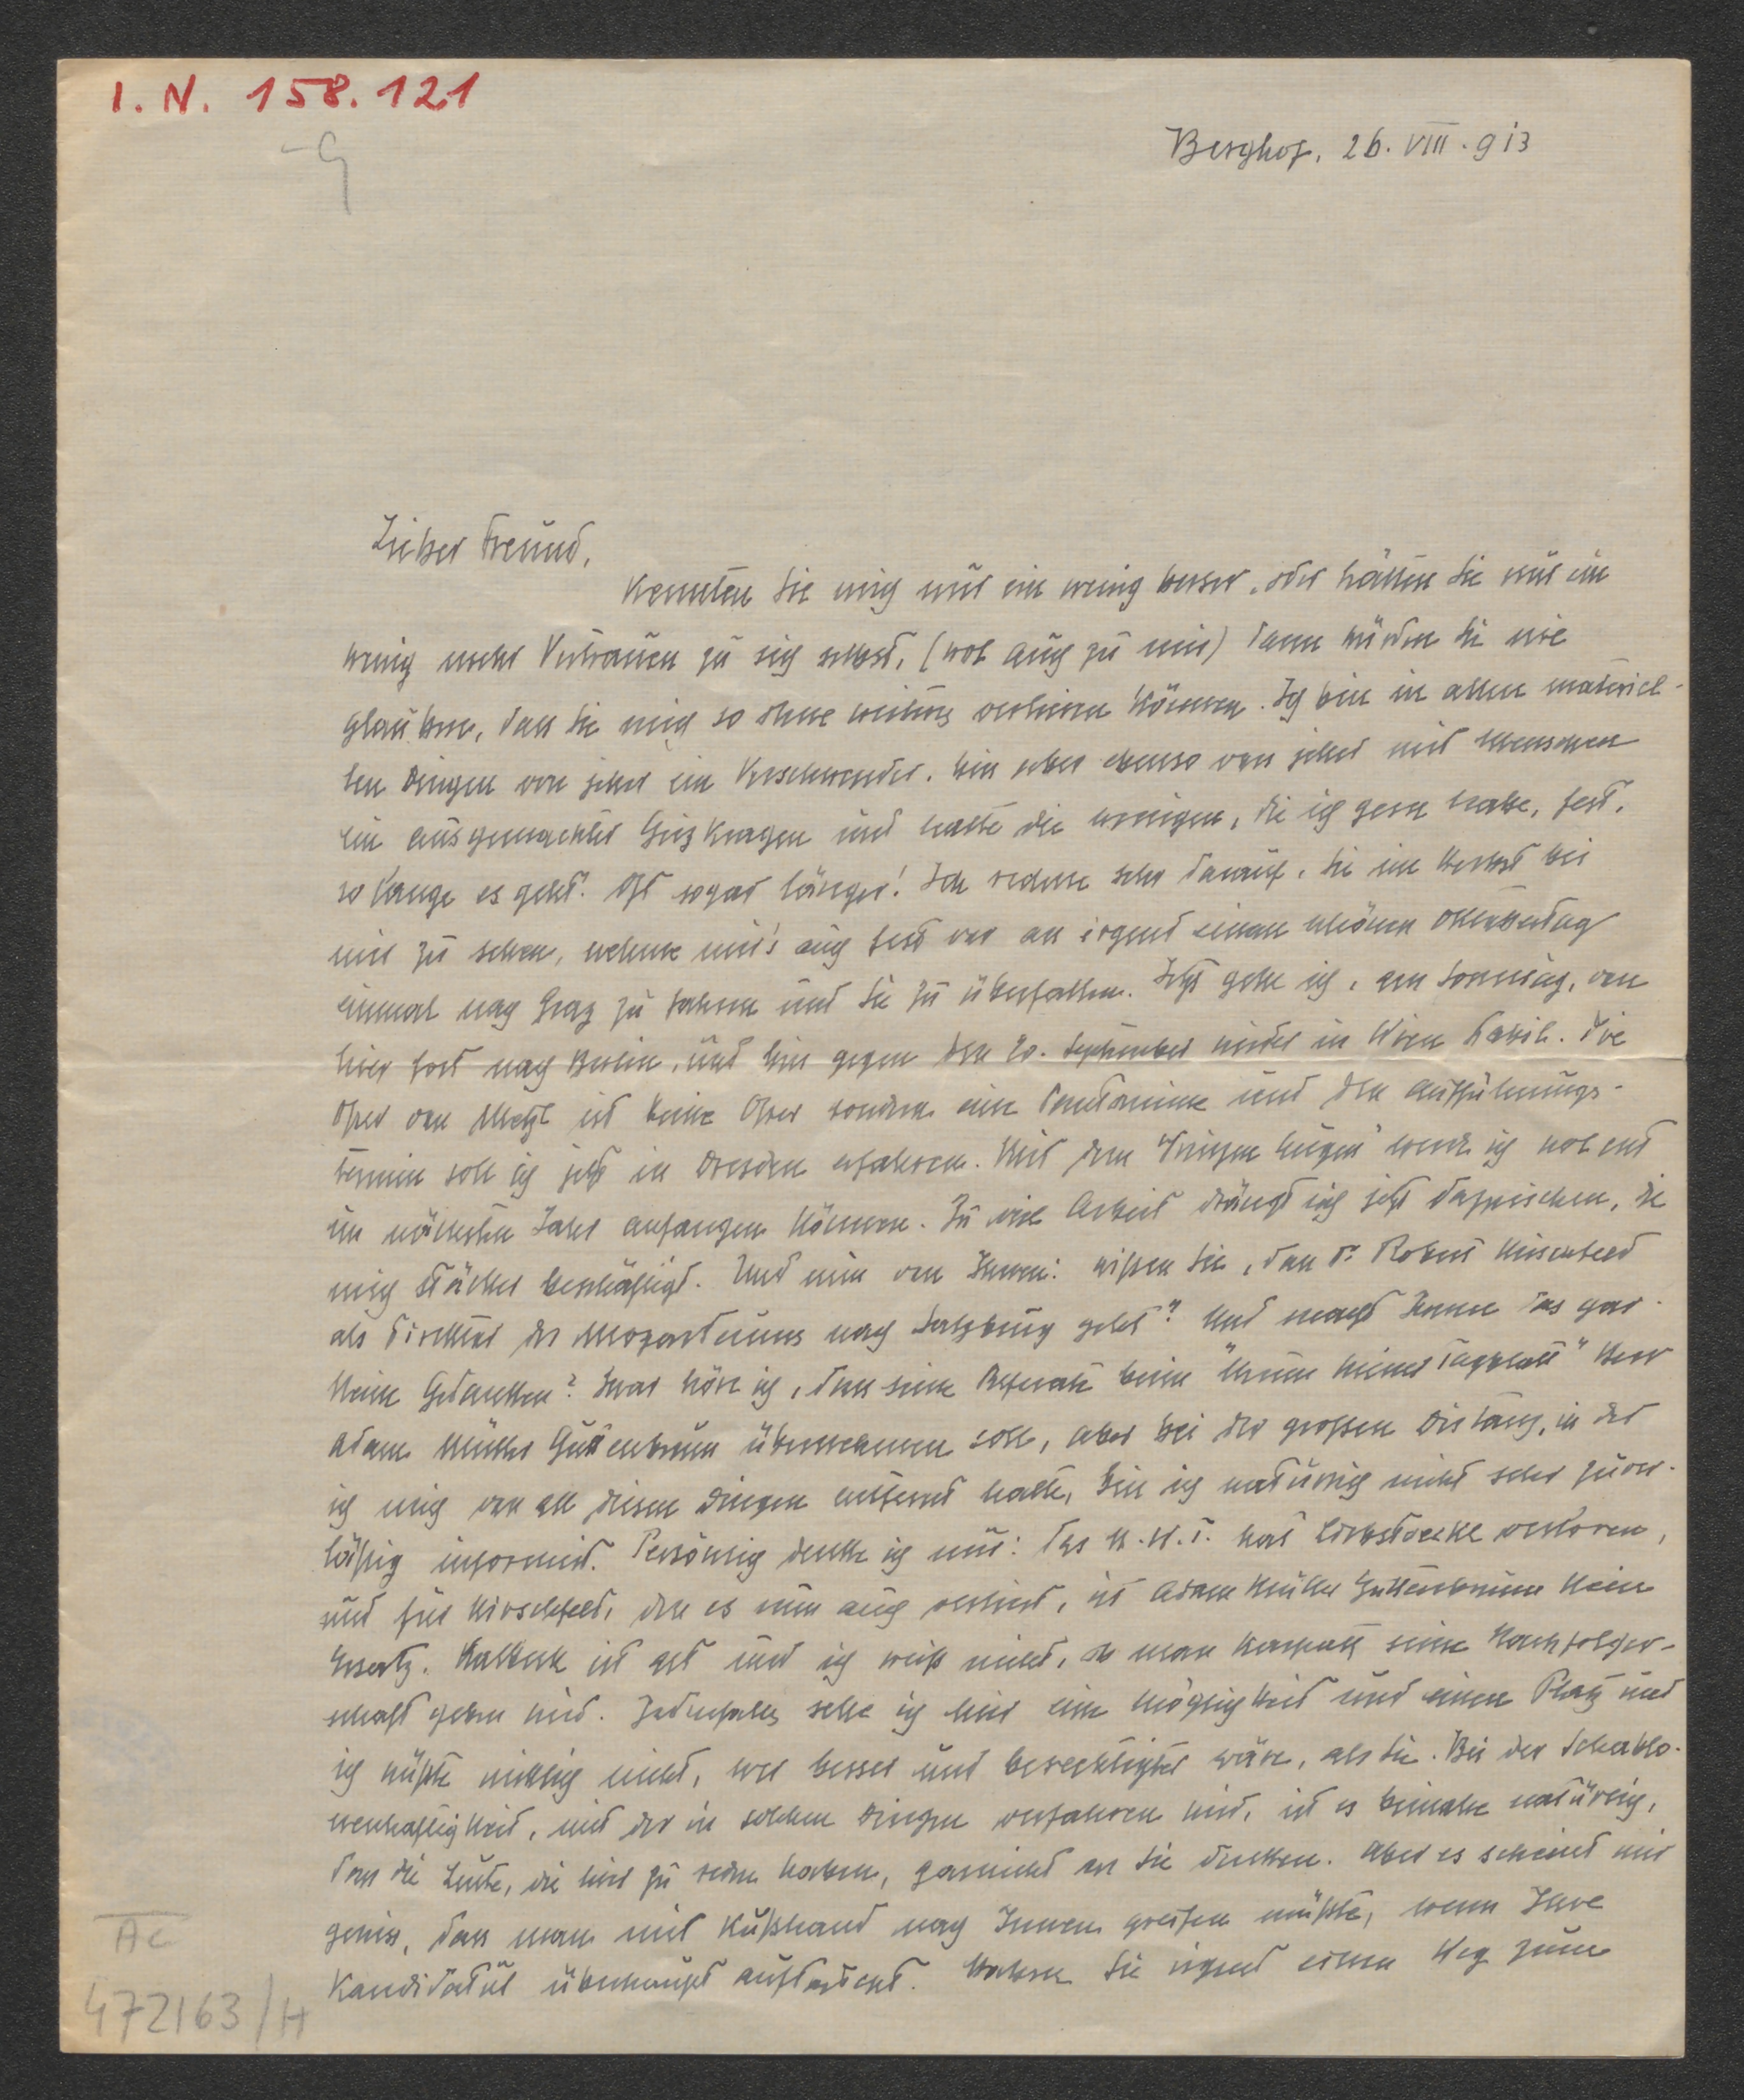 I. N. 158.121
Berghof, 26. VIII. 913
Lieber Freund,
kennten Sie mich nur ein wenig besser, oder hätten Sie nur ein
wenig mehr Vertrauen zu sich selbst, (wol auch zu mir) dann würden Sie nie
glauben, dass Sie mich so ohne weiters verlieren können. Ich bin in allen materiel-
len Dingen von jeher ein Verschwender, bin aber ebenso von jeher mit Menschen
ein ausgemachter Geizkragen und halte die wenigen, die ich gern habe, fest,
so lange es geht. Oft sogar länger! Ich rechne sehr darauf, Sie im Herbst bei
mir zu sehen, nehme mir's auch fest vor an irgend einem schönen Oktobertag
einmal nach Graz zu fahren und Sie zu überfallen. Jetzt gehe ich, am Sonntag, von
hier fort nach Berlin, und bin gegen den 20. September wieder in Wien stabil. Die
Oper von Metzl ist keine Oper sondern eine Pantomime und den Aufführungs-
termin soll ich jetzt in Dresden erfahren. Mit dem "Prinzen Eugen" werde ich wol erst
im nächsten Jahr anfangen können. Zu viel Arbeit drängt sich jetzt dazwischen, die
mich stärker beschäftigt. Und nun von Ihnen: wissen Sie, dass Dr. Robert Hirschfeld
als Direktor des Mozarteums nach Salzburg geht? Und macht Ihnen das gar
keine Gedanken? Zwar höre ich, dass seine Referate beim "Neuen Wiener Tagblatt" Herr
Adam Müller Guttenbrunn übernehmen soll, aber bei der grossen Distanz, in der
ich mich von all diesen Dingen entfernt halte, bin ich natürlich nicht sehr zuver-
lässig informirt. Persönlich denke ich mir: Das N. W. T. hat Liebstoeckl verloren,
und für Hirschfeld, den es nun auch verliert, ist Adam Müller Guttenbrunn kein
Ersatz. Kalbeck ist alt und ich weiß nicht, ob man Karpath seine Nachfolger-
schaft geben wird. Jedenfalls sehe ich hier eine Möglichkeit und einen Platz und
ich wüßte wirklich nicht, wer besser und berechtigter wäre, als Sie. Bei der Schablo-
nenhaftigkeit, mit der in solchen Dingen verfahren wird, ist es beinahe natürlich,
dass die Leute, die hier zu reden haben, garnicht an Sie denken. Aber es scheint mir
gewiss, dass man mit Kußhand nach Ihnen greifen müßte, wenn Ihre
Kandidatur überhaupt auftaucht. Haben Sie irgend einen Weg zum
AC
472163/H